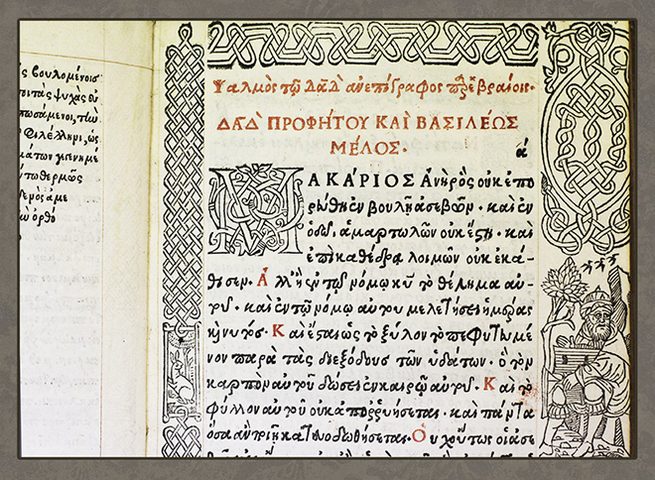 ς βουλομένοισ
ψυχὰς οὐ
τῶν
Φιλέλληνι, ὡς
θερμῶς
ὀρθό
Ψαλμὸς τῷ Δαδ̀ ἀνεπίγραφος παρ' ἑβραίοις·
ΔΑΔ̀ ΠΡΟΦΗΤΟΥ ΚΑΙ ΒΑΣΙΛΕΩΣ
ΜΕΛΟΣ·
ά
ΜΑΚΑΡΙΟΣ Ἀνὴρ ὃς οὐκ ἐπο
ρεύθη ἐν βουλῇ ἀσεβῶν· καὶ ἐν
ὁδῷ ἁμαρτωλῶν οὐκ ἔστη· καὶ
ἐπὶ καθέδρᾳ λοιμῶν οὐκ ἐκά-
θισεν· Ἀλλ' ἢ ἐν τῷ νόμῳ κυ τὸ θέλημα αὐ-
τοῦ· καὶ ἐν τῷ νόμῳ αὐτοῦ μελετήσει ἡμέρας
καὶ νυκτός· Καὶ ἔσται ὡς τὸ ξύλον τὸ πεφυτευμέ
νον παρὰ τὰς διεξόδους τῶν ὑδάτων· ὃ τὸν
καρπὸν αὐτοῦ δώσει ἐν καιρῷ αὐτοῦ· Καὶ τὸ
φύλλον αὐτοῦ οὐκ ἀπορρυήσεται· καὶ πάντα
ὅσα ἂν ποιῇ κατευοδωθήσεται· Οὐχ οὕτως οἱ ἀσε